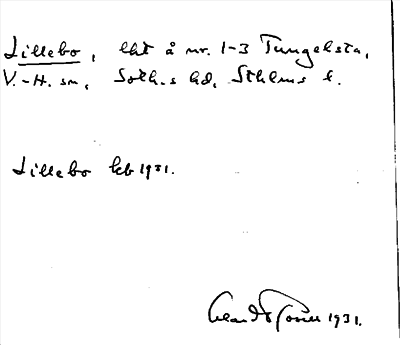 Lillebo, lht å nr. 1-3 Tungelsta,
V.-H. sn, Soth.s hd, Sthlms l.
Lillebo kb 1931.
1931.